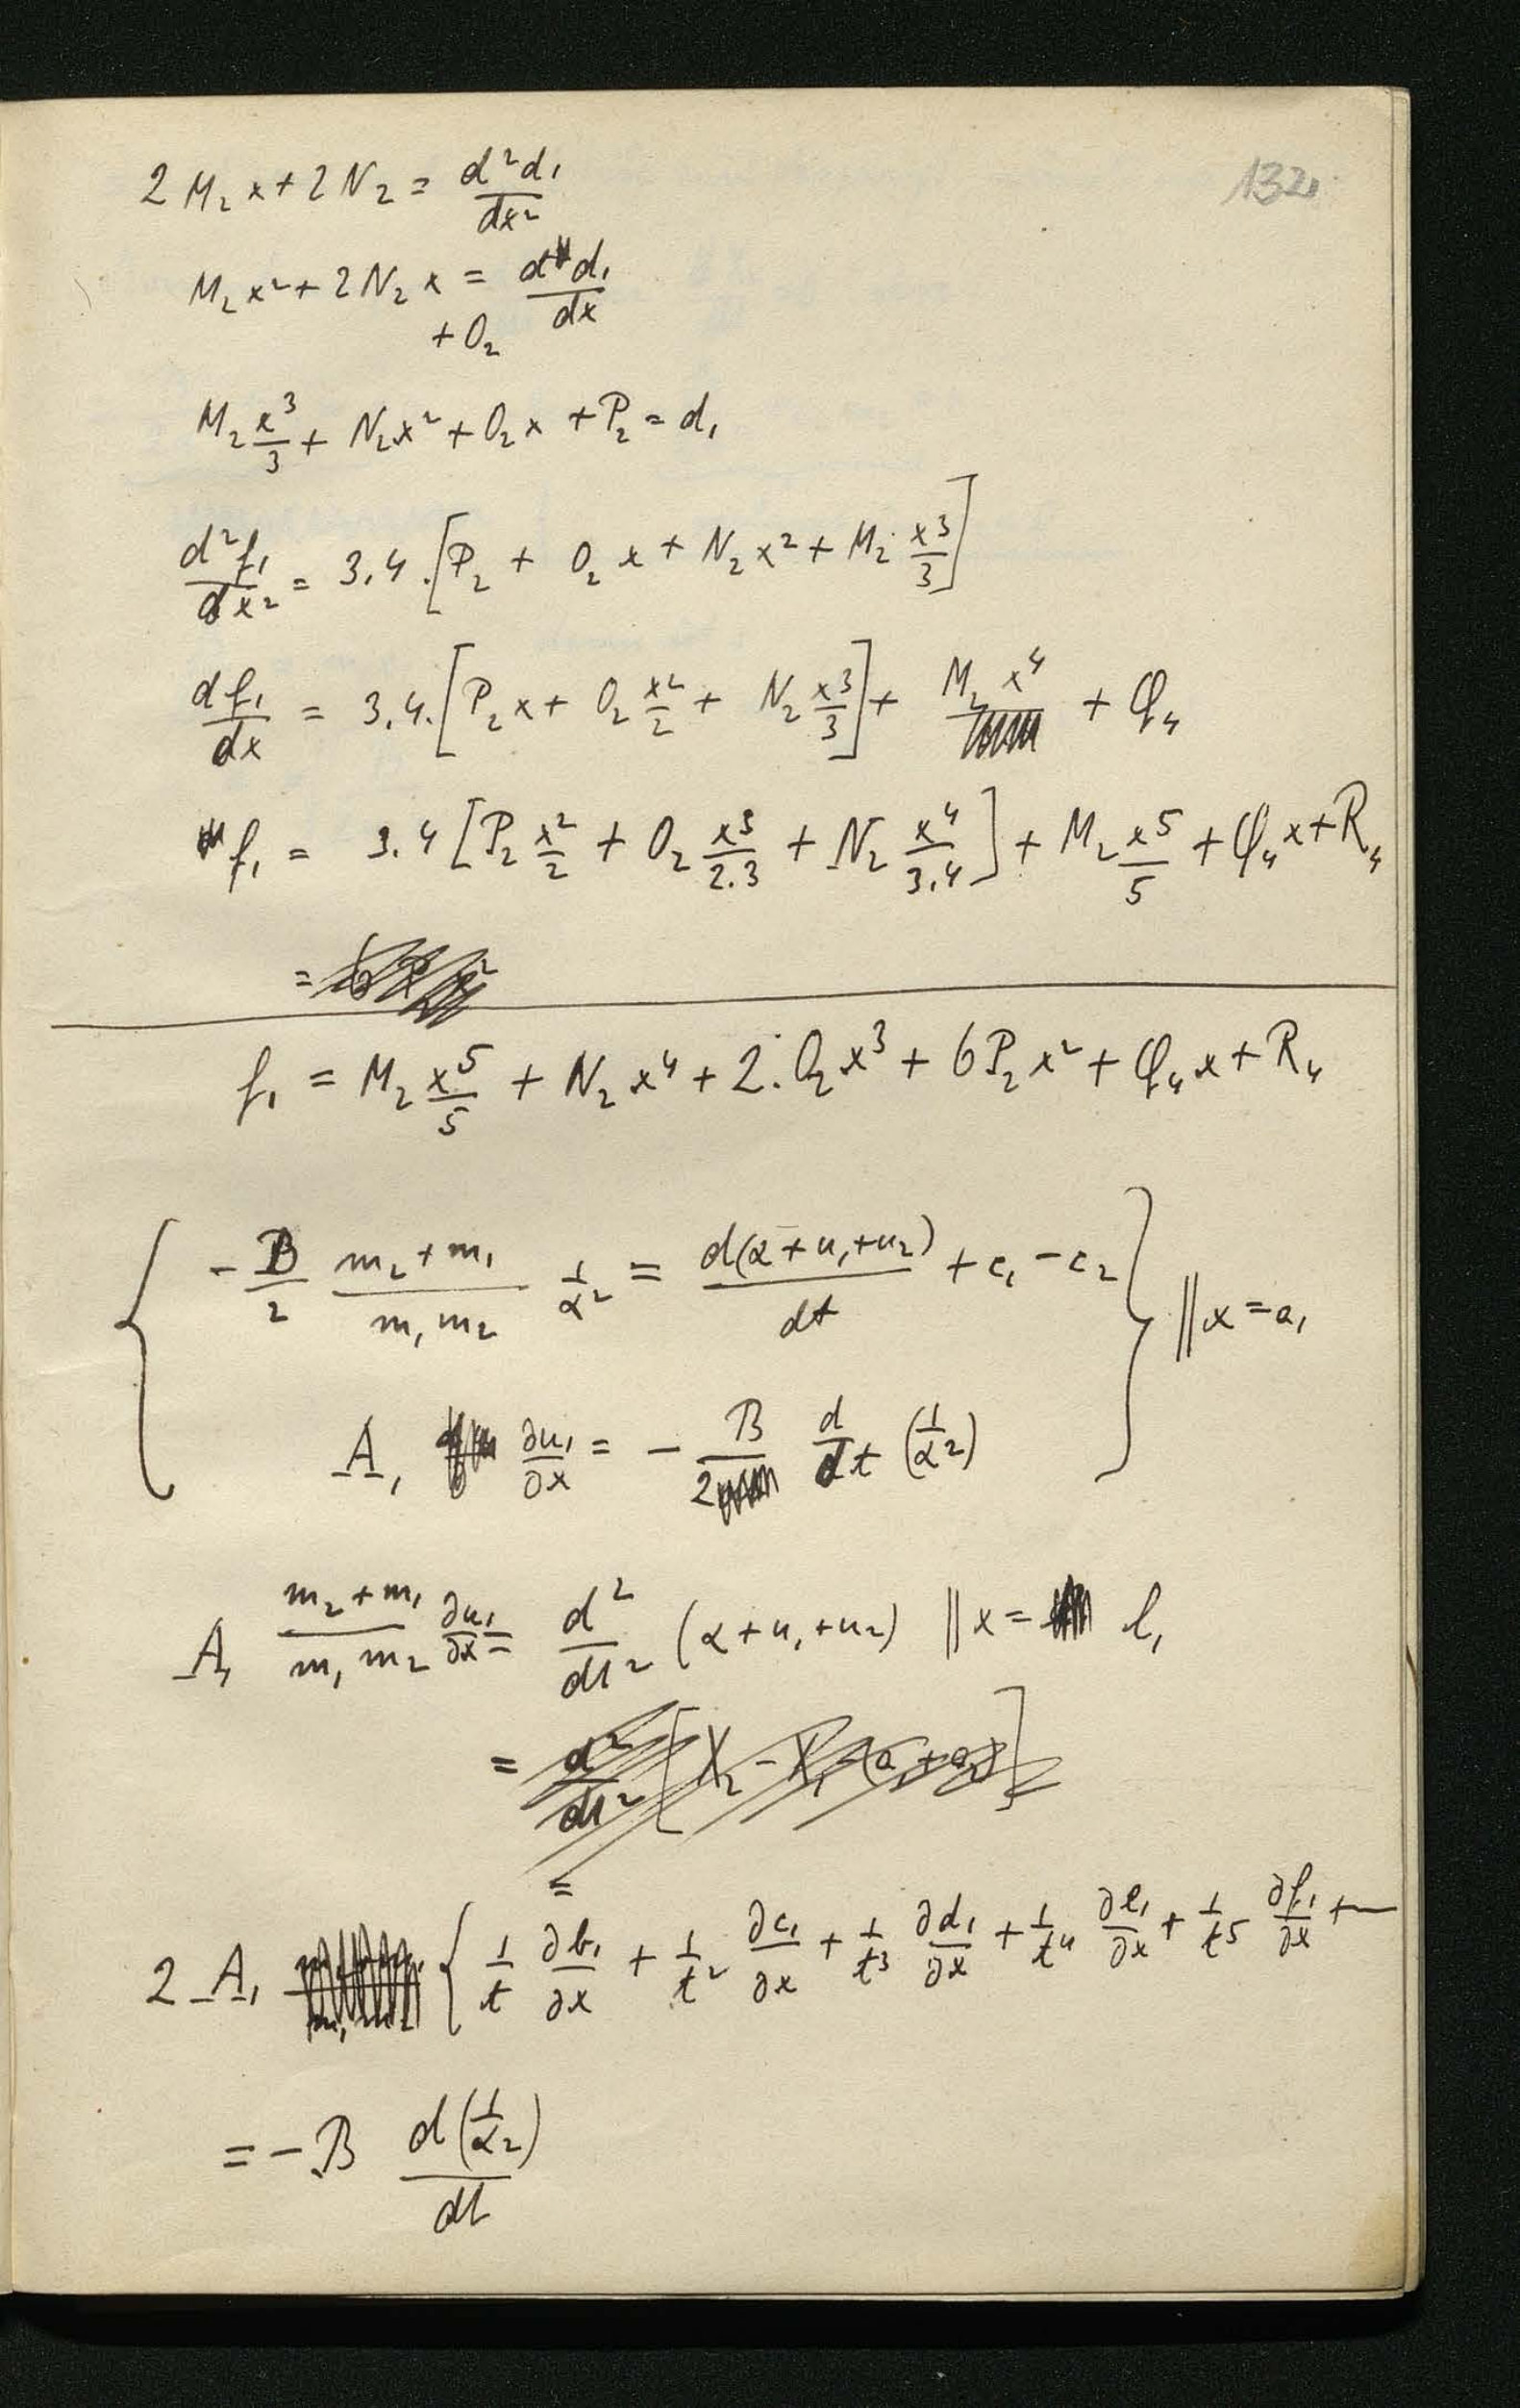 132
2 M₂ x + 2 N₂ = d²d₁/dx²
M₂ x² + 2 N₂ x = d d₁/dx
+ O₂
M₂ x³/3 + N₂x² + O₂x + P₂ = d₁
d²f₁/dx² = 3.4.[P₂ + O₂ x + N₂ x² + M₂ x³/3]
df₁/dx = 3.4.[P₂ x + O₂ x²/2 + N₂ x³/3] + M₂ x⁴ + Q₄
f₁ = 3.4 [P₂ x²/2 + O₂ x³/2.3 + N₂ x⁴/3.4] + M₂ x⁵/5 + Q₄ x + R₄
=
f₁ = M₂ x⁵/5 + N₂ x⁴ + 2.O₂ x³ + 6P₂ x² + Q₄ x + R₄
{ - B/2 (m₂ + m₁)/(m₁ m₂) 1/α² = d(α + u₁ + u₂)/dt + c₁ - c₂ } || x = a₁
A₁ ∂u₁/∂x = - B/2 d/dt (1/α²)
A₁ (m₂ + m₁)/(m₁ m₂) ∂u₁/∂x = d²/dt² (α + u₁ + u₂) || x = l₁
= d²/dt² [X₂ - X₁ - (a₁ + a₂)]
=
2 A₁ { 1/t ∂b₁/∂x + 1/t² ∂c₁/∂x + 1/t³ ∂d₁/∂x + 1/t⁴ ∂e₁/∂x + 1/t⁵ ∂f₁/∂x + —
= - B d(1/α²)/dt